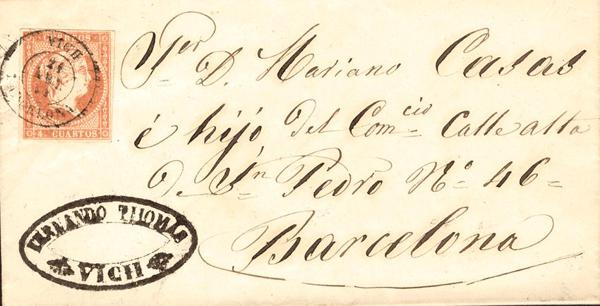 VICH
4 CUARTOS
Sor D. Mariano Casas
é hijó del Comcio Calle alta
de Sn Pedro No 46=
Barcelona
FERNANDO THOMAS
VICH